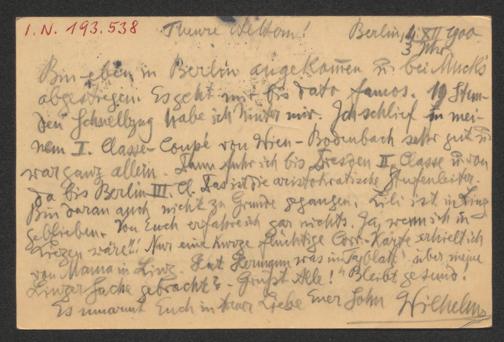 I.N. 193.538
Theure Eltern! Berlin, 4. XII 900
3 Uhr
Bin eben in Berlin angekommen u bei Mucks
abgestiegen. Es geht mir bis dato famos. 19 Stun-
den Schnellzug habe ich hinter mir. Ich schlief in mei-
nem I. Classe-Coupé von Wien-Bodenbach sehr gut u
war ganz allein. Dann fuhr ich bis Dresden II. Classe u von
da bis Berlin III. Cl. Das ist die aristokratische Stufenleiter.
Bin daran auch nicht zu Grunde gegangen. Lili ist in Linz
geblieben. Von Euch erfahre ich gar nichts. Ja, wenn ich in
wäre!! Nur eine kurze flüchtige Corr-Karte erhielt ich
von Mama in Linz. Hat Hermann was im Tagblatt über meine
Linzer Sache gebracht? Grüßt Alle! Bleibt gesund!
Es umarmt Euch in treuer Liebe Euer Sohn Wilhelm